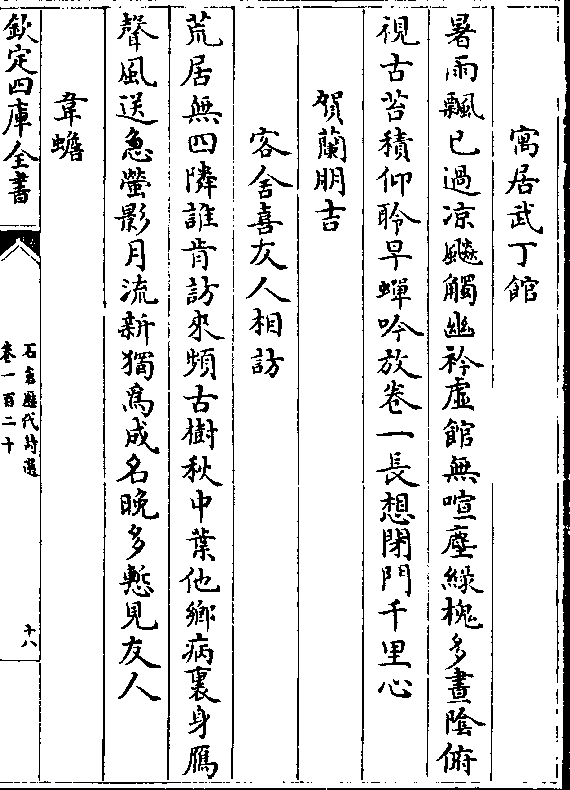 寓居武丁館
暑雨飄已過涼飈觸幽衿虛館無喧塵綠槐多晝陰俯
視古苔積仰聆早蟬吟放卷一長想閉門千里心
賀蘭朋吉
客舍喜友人相訪
荒居無四隣誰肯訪來頻古樹秋中葉他鄉病裏身鴈
聲風送急螢影月流新獨爲成名晚多慙見友人
韋蟾
欽定四庫全書
石倉歷代詩選
卷一百二十
十八